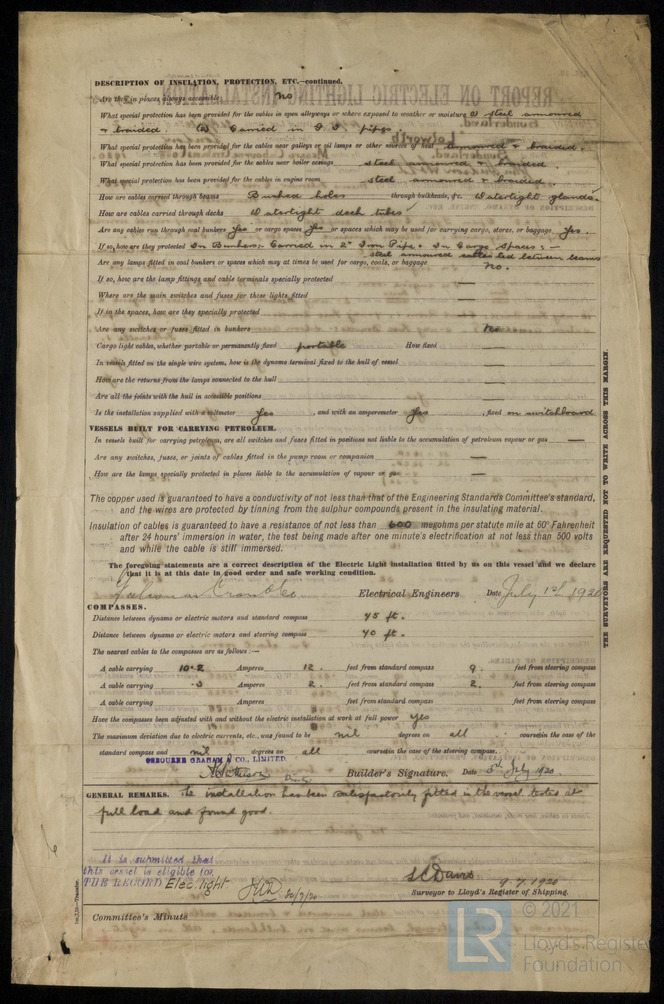 DESCRIPTION OF INSULATION, PROTECTION, ETC.—continued.
Are they in places always accessible No
What special protection has been provided for the cables in open alleyways or where exposed to weather or moisture steel armoured
& braided. Carried in G.I. pipes
What special protection has been provided for the cables near galleys or oil lamps or other sources of heat armoured & braided.
What special protection has been provided for the cables near boiler casings steel armoured & braided.
What special protection has been provided for the cables in engine room steel armoured & braided.
How are cables carried through beams Bushed holes through bulkheads, &c. Watertight glands.
How are cables carried through decks Watertight deck tubes
Are any cables run through coal bunkers Yes or cargo spaces Yes or spaces which may be used for carrying cargo, stores, or baggage Yes.
If so, how are they protected In Bunkers:- Carried in 2" Iron Pipe. In Cargo Spaces:-
steel armoured cables led between beams
Are any lamps fitted in coal bunkers or spaces which may at times be used for cargo, coals, or baggage No.
If so, how are the lamp fittings and cable terminals specially protected —
Where are the main switches and fuses for these lights fitted —
If in the spaces, how are they specially protected —
Are any switches or fuses fitted in bunkers No
Cargo light cables, whether portable or permanently fixed portable How fixed —
In vessels fitted on the single wire system, how is the dynamo terminal fixed to the hull of vessel —
How are the returns from the lamps connected to the hull —
Are all the joints with the hull in accessible positions —
Is the installation supplied with a voltmeter Yes, and with an amperemeter Yes, fixed on switchboard
VESSELS BUILT FOR CARRYING PETROLEUM.
In vessels built for carrying petroleum, are all switches and fuses fitted in positions not liable to the accumulation of petroleum vapour or gas —
Are any switches, fuses, or joints of cables fitted in the pump room or companion —
How are the lamps specially protected in places liable to the accumulation of vapour or gas —
The copper used is guaranteed to have a conductivity of not less than that of the Engineering Standards Committee's standard,
and the wires are protected by tinning from the sulphur compounds present in the insulating material.
Insulation of cables is guaranteed to have a resistance of not less than 600 megohms per statute mile at 60° Fahrenheit
after 24 hours' immersion in water, the test being made after one minute's electrification at not less than 500 volts
and while the cable is still immersed.
The foregoing statements are a correct description of the Electric Light installation fitted by us on this vessel and we declare
that it is at this date in good order and safe working condition.
Electrical Engineers Date July 1st 1920
COMPASSES.
Distance between dynamo or electric motors and standard compass 45 ft.
Distance between dynamo or electric motors and steering compass 40 ft.
The nearest cables to the compasses are as follows:—
A cable carrying 10.2 Amperes 12. feet from standard compass 9. feet from steering compass
A cable carrying .3 Amperes 2. feet from standard compass 2. feet from steering compass
A cable carrying Amperes feet from standard compass feet from steering compass
Have the compasses been adjusted with and without the electric installation at work at full power yes
The maximum deviation due to electric currents, etc., was found to be nil degrees on all course in the case of the
standard compass and nil degrees on all course in the case of the steering compass.
OSBOURNE GRAHAM & CO., LIMITED.
Builder's Signature. Date July 1920.
GENERAL REMARKS. The installation has been satisfactorily fitted in the vessel tested at
full load and found good.
It is submitted that
this vessel is eligible for
THE RECORD Elec. light 20/7/20
9.7.1920
Surveyor to Lloyd's Register of Shipping.
Committee's Minute
THE SURVEYORS ARE REQUESTED NOT TO WRITE ACROSS THIS MARGIN.
LR
© 2021
Lloyd's Register
Foundation